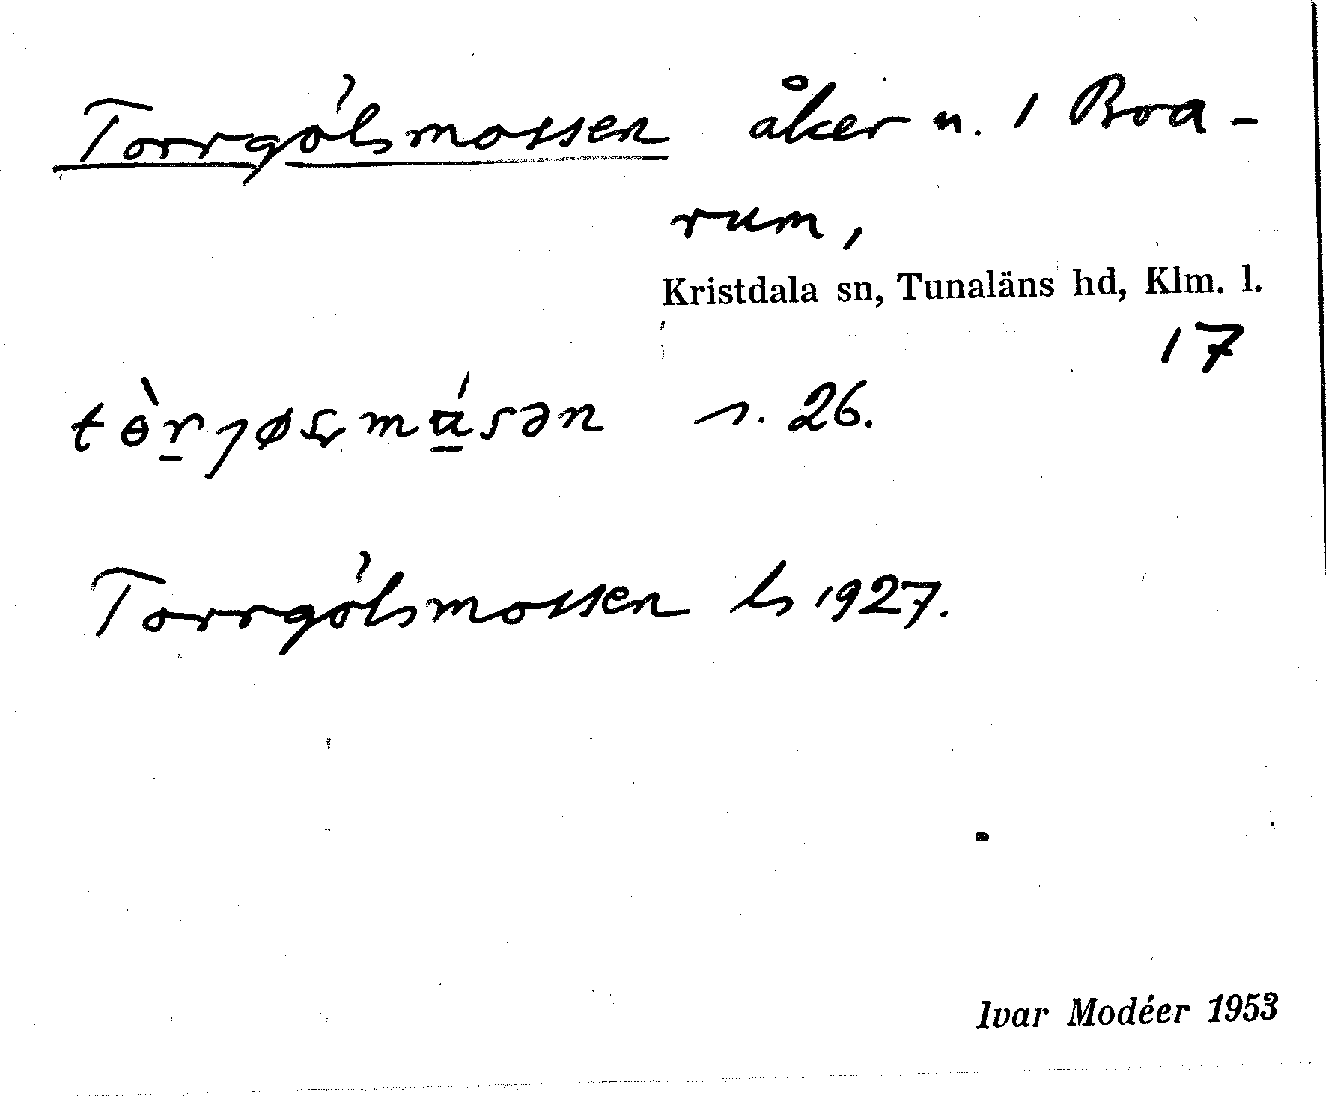 Torrgölsmossen åker n. 1 Boa-
rum,
Kristdala sn, Tunaläns hd, Klm. l.
17
s. 26.
Torrgölsmossen ls 1927.
Ivar Modéer 1953